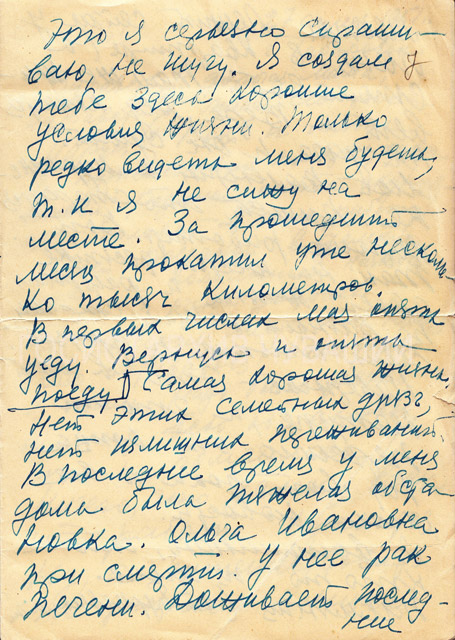 Это я серьезно спраши-
ваю, не шучу. Я создам
тебе здесь хорошие
условия жизни. Только
редко видеть меня будешь,
т.к я не сижу на
месте. За прошедший
месяц прокатил уже несколь-
ко тысяч километров.
В первых числах мая опять
уеду. Вернусь и опять
поеду. Самая хорошая жизнь.
Нет этих семейных дрязг,
нет излишних переживаний.
В последнее время у меня
дома была тяжелая обста-
новка. Ольга Ивановна
при смерти. У нее рак
печени. Доживает послед-
ние